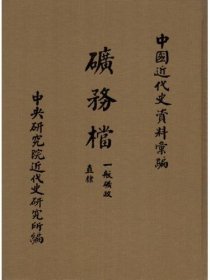 中國近代史資料彙編
礦務檔
一般礦政
直隸
中央研究院近代史研究所編